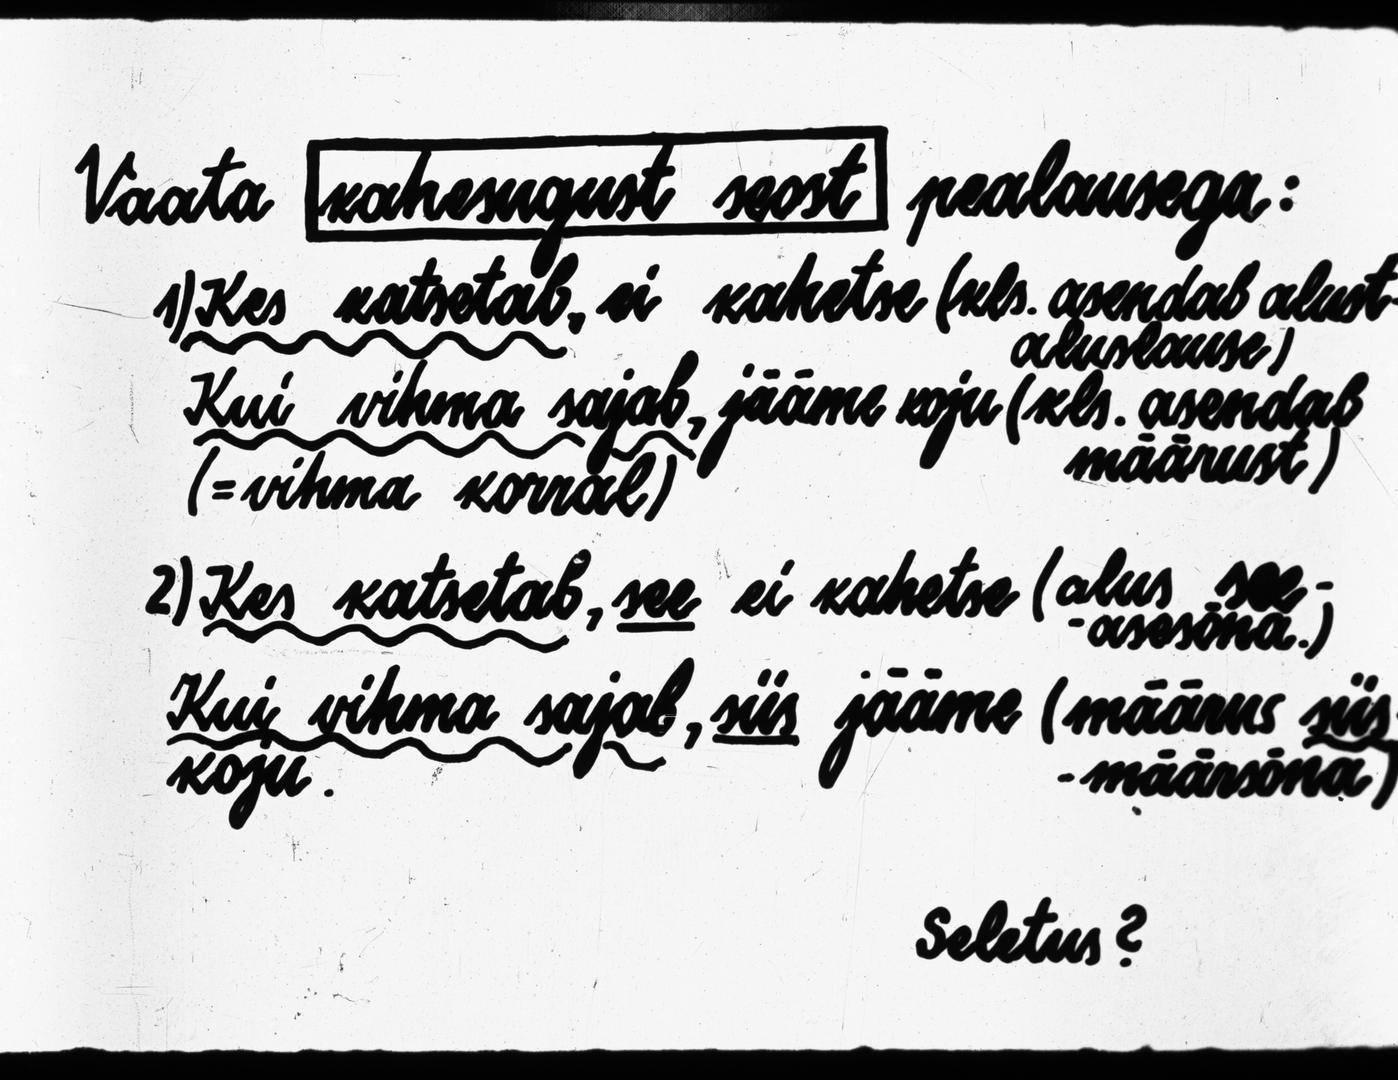 Vaata kahesugust seost pealausega:
1) Kes katsetab, ei kahetse (kls. asendab alust-
aluslause)
Kui vihma sajab, jääme koju (kls. asendab
määrust)
(=vihma korral)
2) Kes katsetab, see ei kahetse (alus see-
-asesõna.)
Kui vihma sajab, siis jääme (määrus siis-
koju. -määrsõna)
Seletus?